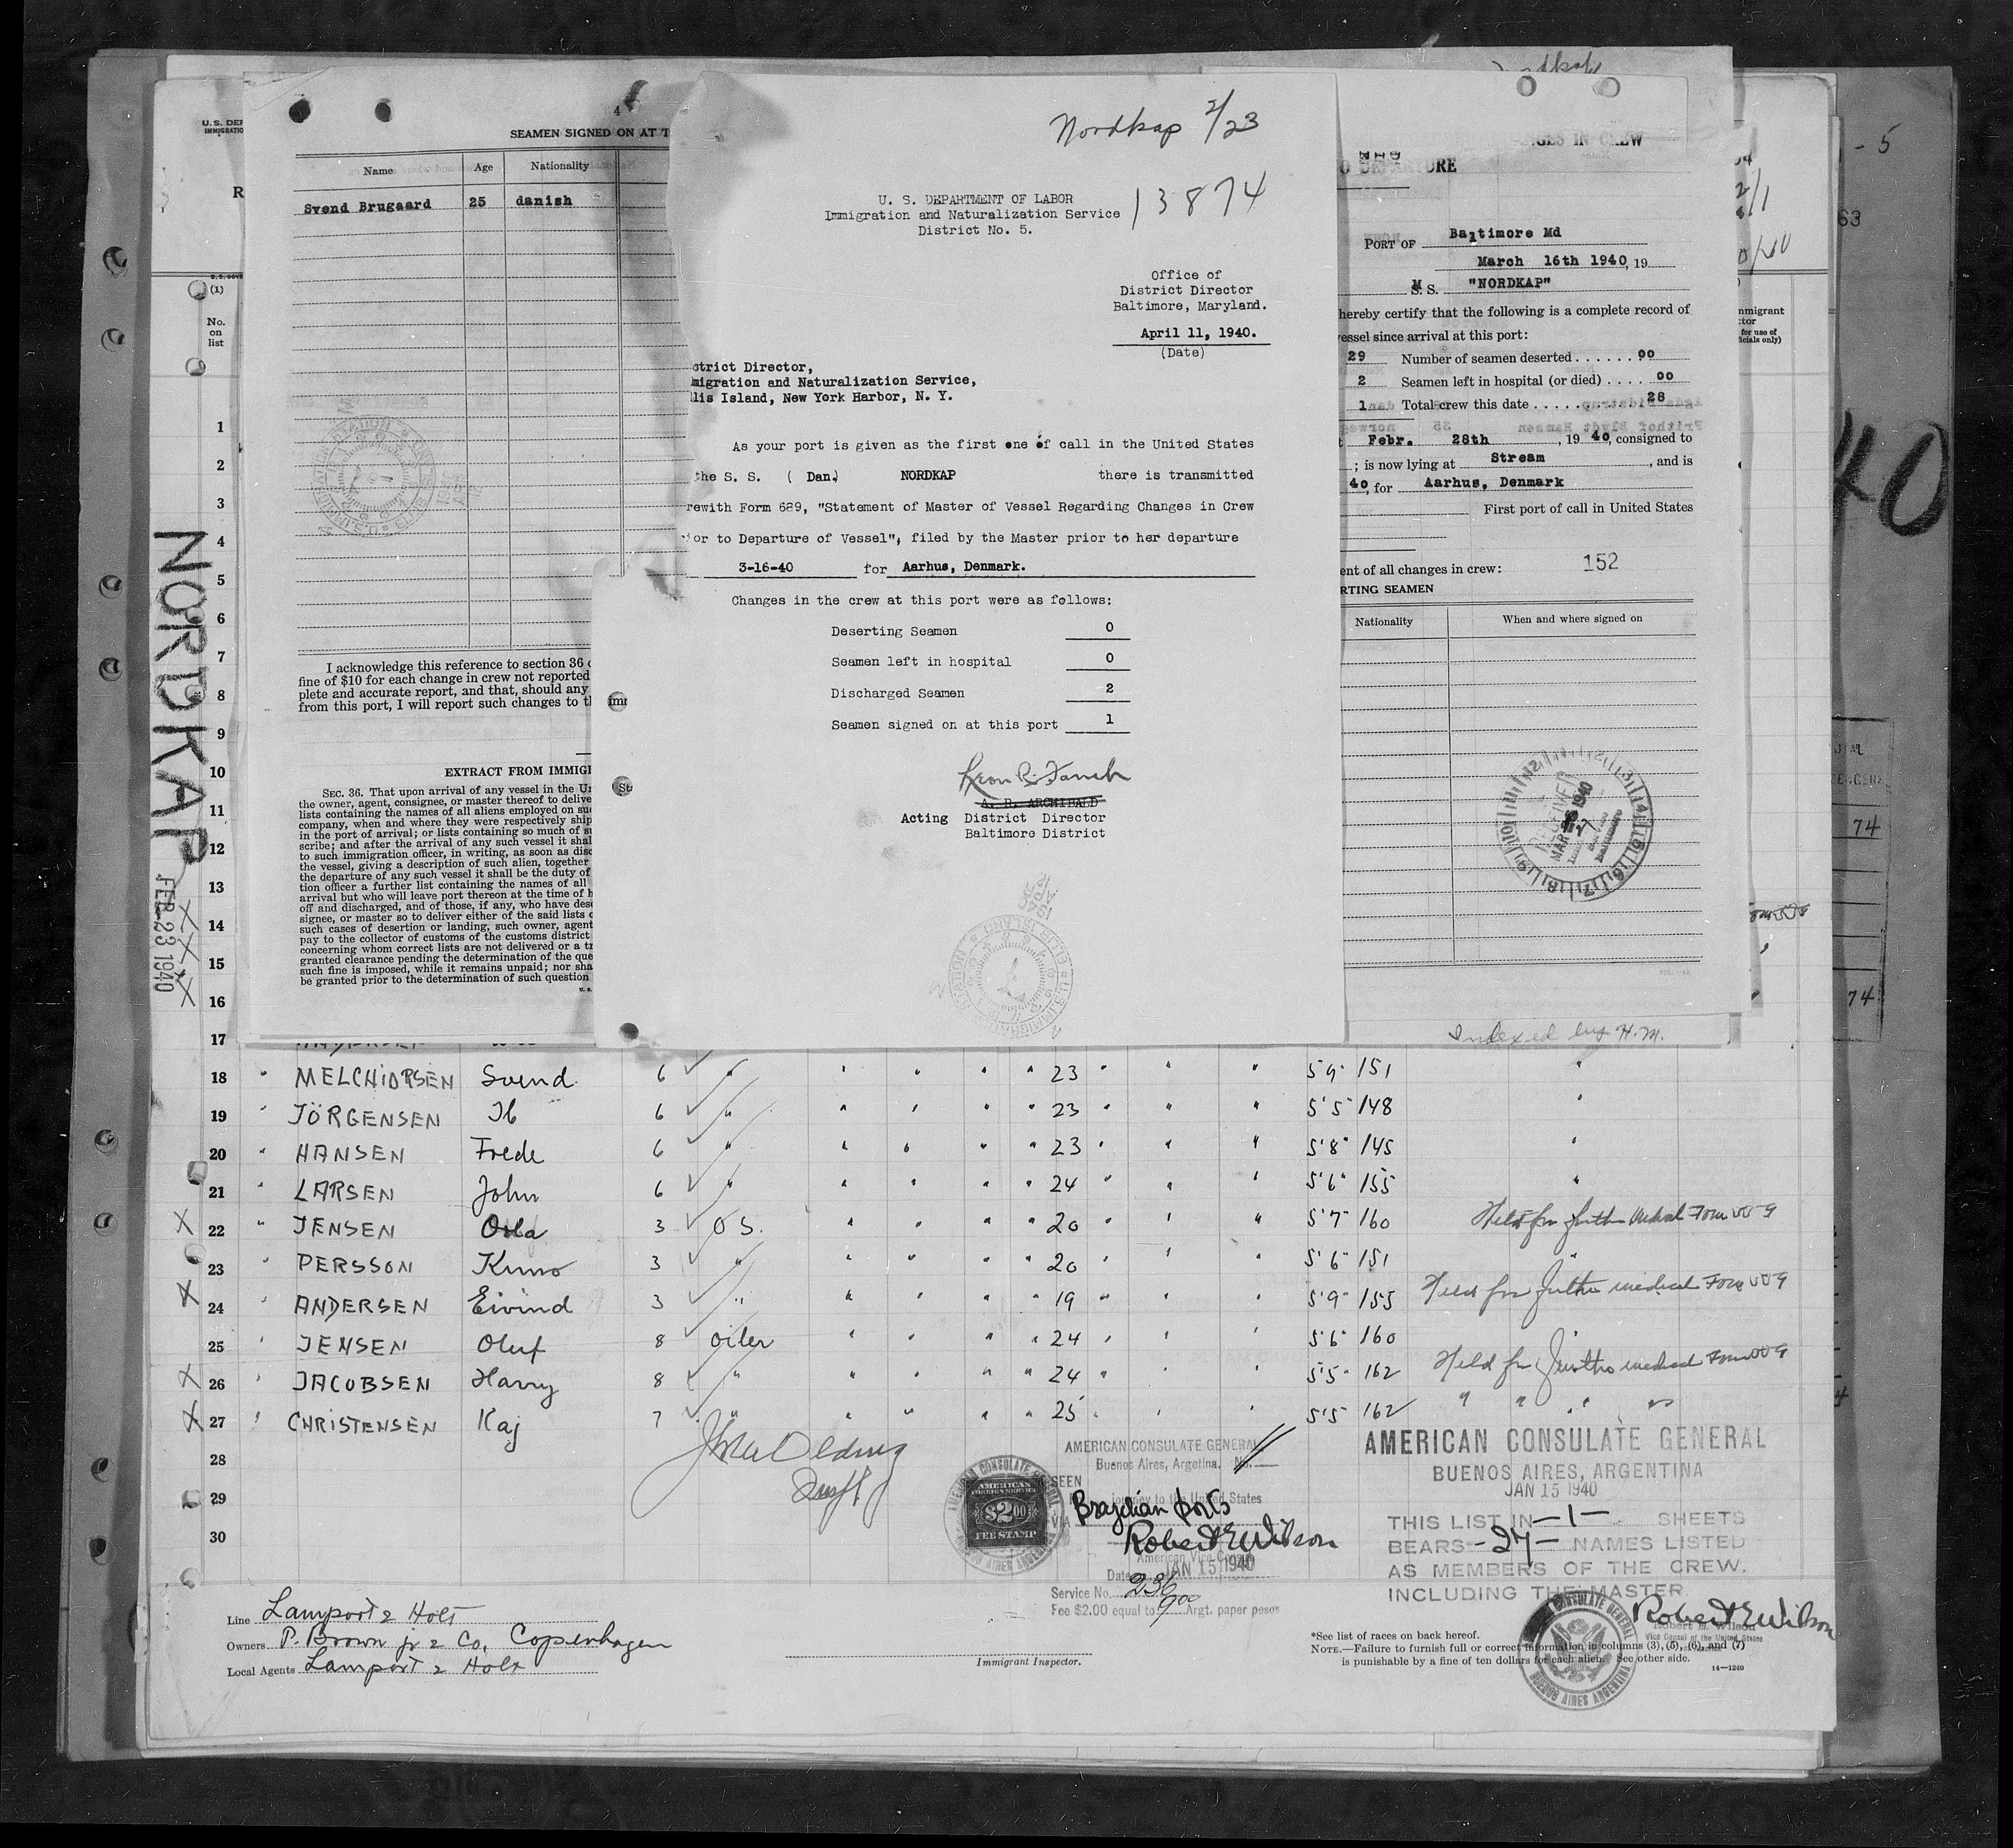 Nordkap 2/23
13874
U. S. DEPARTMENT OF LABOR
Immigration and Naturalization Service
District No. 5.
Office of
District Director
Baltimore, Maryland.
April 11, 1940.
(Date)
strict Director,
migration and Naturalization Service,
llis Island, New York Harbor, N. Y.
As your port is given as the first one of call in the United States
the S. S. ( Dan.) NORDKAP there is transmitted
rewith Form 689, "Statement of Master of Vessel Regarding Changes in Crew
ior to Departure of Vessel", filed by the Master prior to her departure
3-16-40 for Aarhus, Denmark.
Changes in the crew at this port were as follows:
Deserting Seamen 0
Seamen left in hospital 0
Discharged Seamen 2
Seamen signed on at this port 1
A. R. ARCHIBALD
Acting District Director
Baltimore District
4
SEAMEN SIGNED ON AT T
Name Age Nationality
Svend Brugaard 25 danish
I acknowledge this reference to section 36 o
fine of $10 for each change in crew not reported
plete and accurate report, and that, should any
from this port, I will report such changes to th
EXTRACT FROM IMMIG
SEC. 36. That upon arrival of any vessel in the Un
the owner, agent, consignee, or master thereof to delive
lists containing the names of all aliens employed on suc
company, when and where they were respectively ship
in the port of arrival; or lists containing so much of s
scribe; and after the arrival of any such vessel it shal
to such immigration officer, in writing, as soon as disc
the vessel, giving a description of such alien, together
the departure of any such vessel it shall be the duty of
tion officer a further list containing the names of all
arrival but who will leave port thereon at the time of h
off and discharged, and of those, if any, who have dese
signee, or master so to deliver either of the said lists o
such cases of desertion or landing, such owner, agent
pay to the collector of customs of the customs district
concerning whom correct lists are not delivered or a tr
granted clearance pending the determination of the que
such fine is imposed, while it remains unpaid; nor sha
be granted prior to the determination of such question
GES IN CREW
PORT OF Baltimore Md
March 16th 1940, 19
M S. S. "NORDKAP"
hereby certify that the following is a complete record of
essel since arrival at this port:
29 Number of seamen deserted 00
2 Seamen left in hospital (or died) 00
1 Total crew this date 28
Febr. 28th , 19 40, consigned to
; is now lying at Stream , and is
40, for Aarhus, Denmark
First port of call in United States
ent of all changes in crew: 152
RTING SEAMEN
Nationality When and where signed on
Indexed by H.M.
NORDKAP
FEB 23 1940
(1)
No.
on
list
1
2
3
4
5
6
7
8
9
10
11
12
13
14
15
16
17
18 " MELCHIORSEN Svend 6 " " " " " 23 " " " 5'9" 151 "
19 " JÖRGENSEN Ib 6 " " " " " 23 " " " 5'5" 148 "
20 " HANSEN Frede 6 " " " " " 23 " " " 5'8" 145 "
21 " LARSEN John 6 " " " " " 24 " " " 5'6" 155 "
X 22 " JENSEN Orla 3 O S. " " " " 20 " " " 5'7" 160 Held for further medical Form
23 " PERSSON Kuno 3 " " " " " 20 " " " 5'6" 151 "
X 24 " ANDERSEN Eivind 3 " " " " " 19 " " " 5'9" 155 Held for further medical Form
25 " JENSEN Oluf 8 oiler " " " " 24 " " " 5'6" 160 "
X 26 " JACOBSEN Harry 8 " " " " " 24 " " " 5'5" 162 Held for further medical Form
X 27 " CHRISTENSEN Kaj 7 " " " " " 25 " " " 5'5" 162 " " " "
28
29
30
AMERICAN CONSULATE GENERAL
Buenos Aires, Argetina. No.
SEEN
journey to the United States
VIA Brazilian ports
Robert E Wilson
American Vice Consul
Date JAN 15 1940
Service No. 236
Fee $2.00 equal to 9.00 Argt. paper pesos
AMERICAN
FOREIGN SERVICE
$2.00
FEE STAMP
AMERICAN CONSULATE GENERAL
BUENOS AIRES, ARGENTINA
JAN 15 1940
THIS LIST IN -1- SHEETS
BEARS -27- NAMES LISTED
AS MEMBERS OF THE CREW.
INCLUDING THE MASTER
Robert E Wilson
Robert E. Wilson
Vice Consul of the United States
Line Lamport & Holt
Owners P. Brown jr & Co, Copenhagen
Local Agents Lamport & Holt
Immigrant Inspector.
*See list of races on back hereof.
NOTE.—Failure to furnish full or correct information in columns (3), (5), (6), and (7)
is punishable by a fine of ten dollars for each alien. See other side.
14—1240